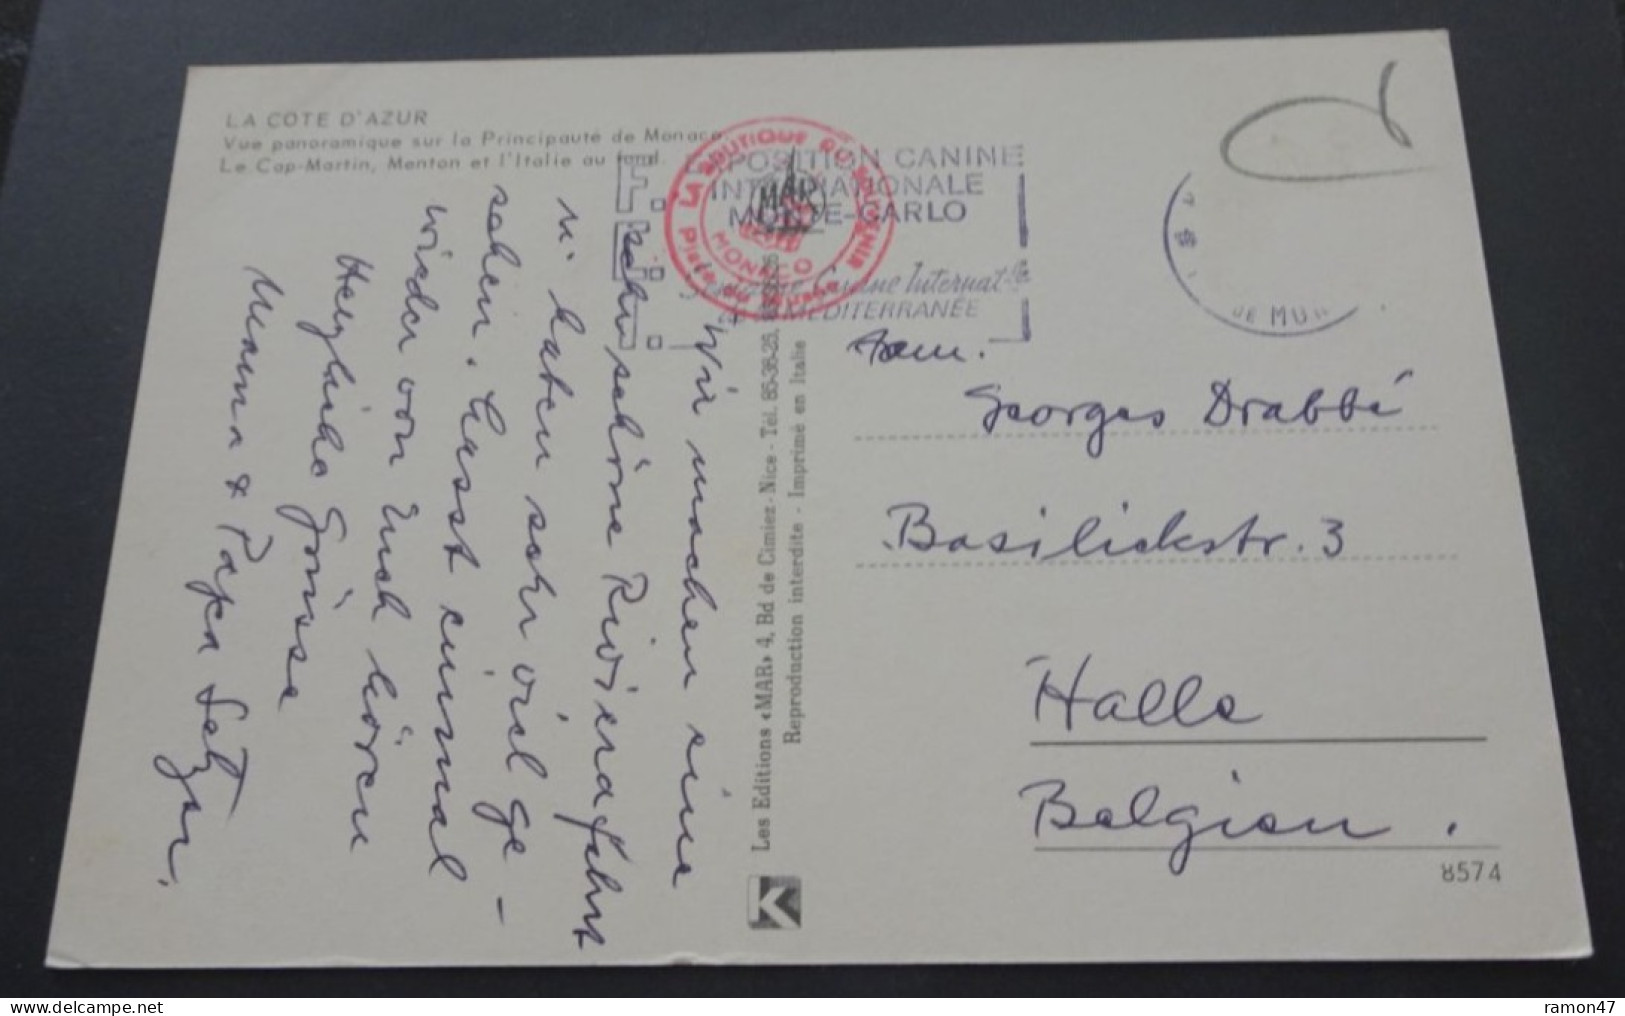 LA COTE D'AZUR
Vue panoramique sur la Principauté de Monaco
Le Cap-Martin, Menton et l'Italie au fond.
LA BOUTIQUE DU SOUVENIR
MAR
MONACO
EXPOSITION CANINE
INTERNATIONALE
MONTE-CARLO
Canine Internat
MÉDITERRANÉE
Wir machen eine
sehr schöne Rivierafahrt
u. haben sehr viel ge-
sehen. Lasst einmal
wieder von Euch hören
Herzliche Grüsse
Mama & Papa
Les Editions «MAR» 4, Bd de Cimiez - Nice - Tél. 85-36-25,
Reproduction interdite - Imprimé en Italie
K
Fam.
Georges Drabbé
Basiliekstr. 3
Halle
Belgien.
8574
ramon47